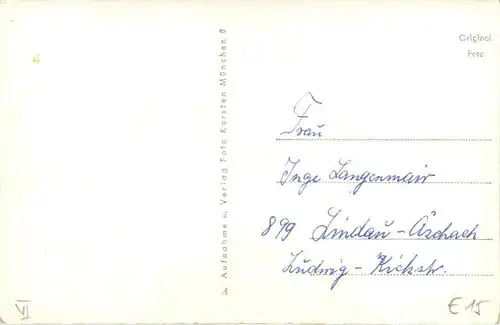 Original
Foto
A Aufnahme u. Verlag Foto Karsten München 8
Frau
Inge Langenmair
899 Lindau-Äschach
Ludwig-Kickstr.
VI
€ 15